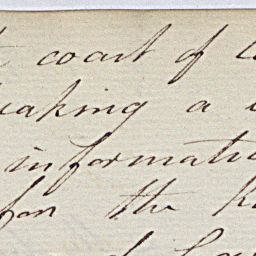 coast of
making a
informati
for the